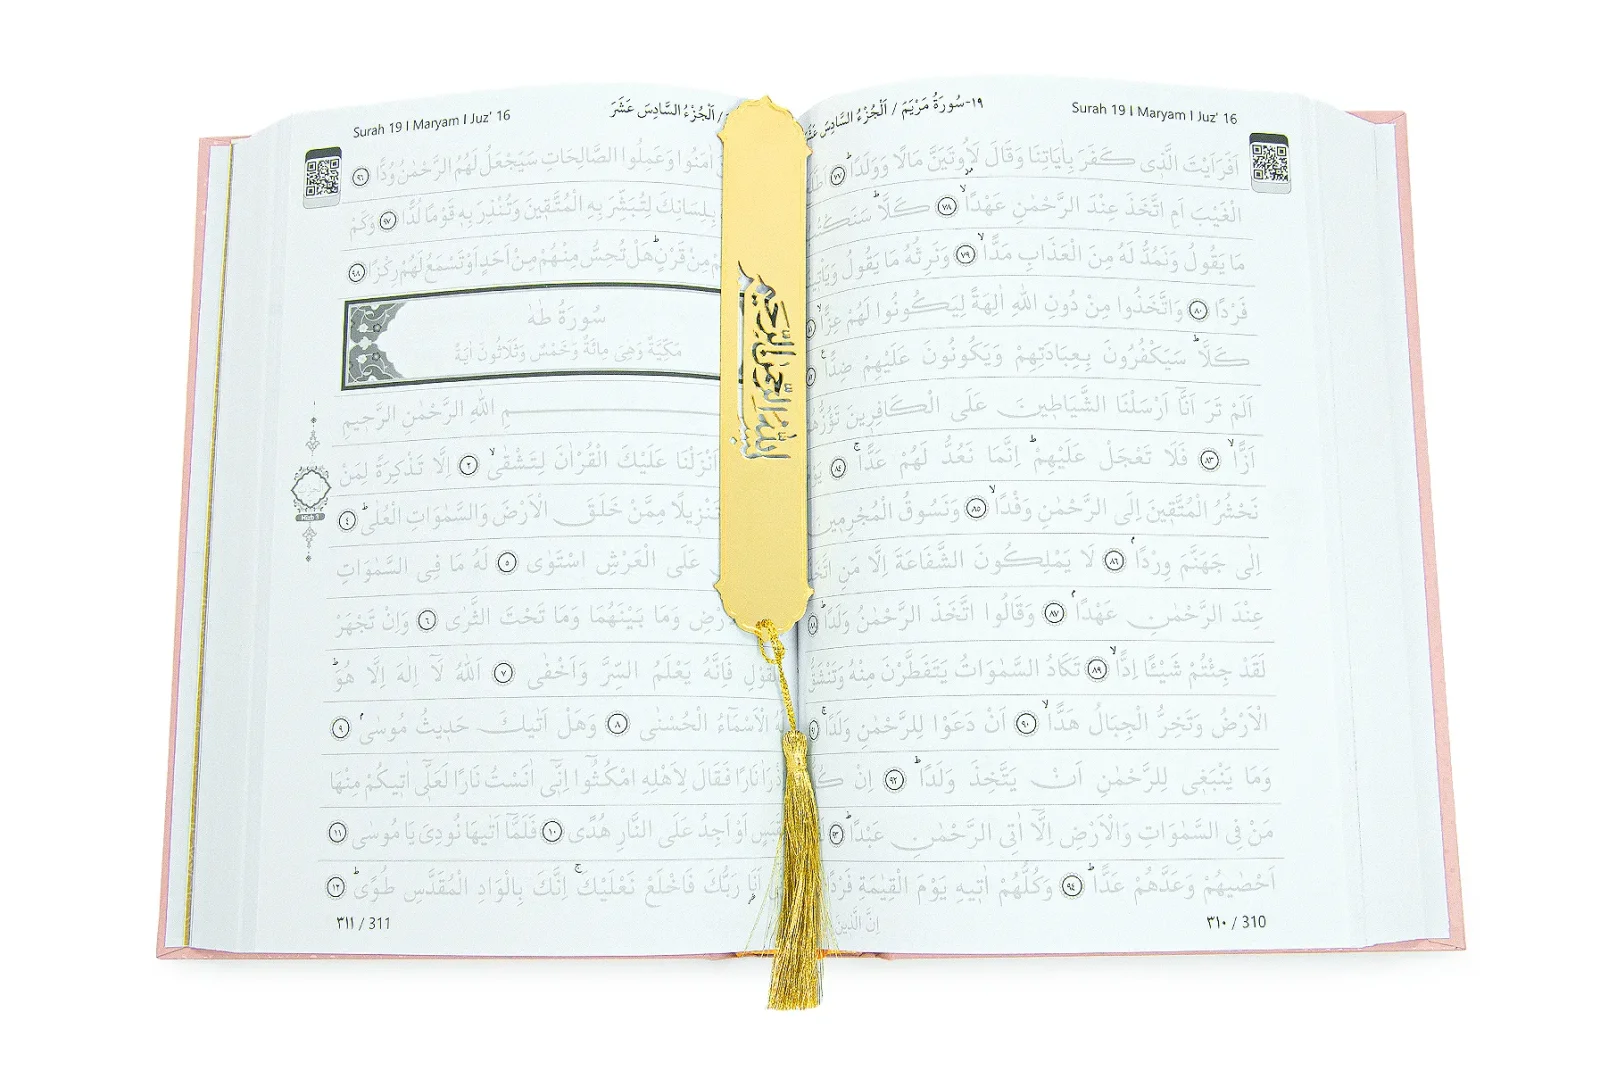 ١٩-سُورَةُ مَرْيَمَ / اَلْجُزْءُ السَّادِسَ Surah 19 I Maryam I Juz' 16
اَفَرَاَيْتَ الَّذٖى كَفَرَ بِاٰيَاتِنَا وَقَالَ لَاُوتَيَنَّ مَالًا وَوَلَدًاؕ ٧٧
الْغَيْبَ اَمِ اتَّخَذَ عِنْدَ الرَّحْمٰنِ عَهْدًاۙ ٧٨ كَلَّاؕ
مَا يَقُولُ وَنَمُدُّ لَهُ مِنَ الْعَذَابِ مَدًّاۙ ٧٩ وَنَرِثُهُ مَا يَقُولُ
فَرْدًا ٨٠ وَاتَّخَذُوا مِنْ دُونِ اللّٰهِ اٰلِهَةً لِيَكُونُوا لَهُمْ عِزًّاۙ
كَلَّاؕ سَيَكْفُرُونَ بِعِبَادَتِهِمْ وَيَكُونُونَ عَلَيْهِمْ ضِدًّاۚ
اَلَمْ تَرَ اَنَّٓا اَرْسَلْنَا الشَّيَاطٖينَ عَلَى الْكَافِرٖينَ
اَزًّاۙ ٨٣ فَلَا تَعْجَلْ عَلَيْهِمْؕ اِنَّمَا نَعُدُّ لَهُمْ عَدًّاۚ ٨٤
نَحْشُرُ الْمُتَّقٖينَ اِلَى الرَّحْمٰنِ وَفْدًاۙ ٨٥ وَنَسُوقُ الْمُجْرِمٖينَ
اِلٰى جَهَنَّمَ وِرْدًاۘ ٨٦ لَا يَمْلِكُونَ الشَّفَاعَةَ اِلَّا مَنِ
عِنْدَ الرَّحْمٰنِ عَهْدًاۘ ٨٧ وَقَالُوا اتَّخَذَ الرَّحْمٰنُ وَلَدًاؕ
لَقَدْ جِئْتُمْ شَيْئًا اِدًّاۙ ٨٩ تَكَادُ السَّمٰوَاتُ يَتَفَطَّرْنَ مِنْهُ
الْاَرْضُ وَتَخِرُّ الْجِبَالُ هَدًّاۙ ٩٠ اَنْ دَعَوْا لِلرَّحْمٰنِ وَلَدًاۚ
وَمَا يَنْبَغٖى لِلرَّحْمٰنِ اَنْ يَتَّخِذَ وَلَدًاؕ ٩٢ اِنْ
مَنْ فِى السَّمٰوَاتِ وَالْاَرْضِ اِلَّٓا اٰتِى الرَّحْمٰنِ عَبْدًاؕ ٩٣
اَحْصٰيهُمْ وَعَدَّهُمْ عَدًّاؕ ٩٤ وَكُلُّهُمْ اٰتٖيهِ يَوْمَ الْقِيٰمَةِ فَرْدًا
اِنَّ الَّذٖينَ
٣١٠ / 310
اَلْجُزْءُ السَّادِسَ عَشَرَ Surah 19 I Maryam I Juz' 16
اٰمَنُوا وَعَمِلُوا الصَّالِحَاتِ سَيَجْعَلُ لَهُمُ الرَّحْمٰنُ وُدًّا ٩٦
بِلِسَانِكَ لِتُبَشِّرَ بِهِ الْمُتَّقٖينَ وَتُنْذِرَ بِهٖ قَوْمًا لُدًّا ٩٧ وَكَمْ
مِنْ قَرْنٍؕ هَلْ تُحِسُّ مِنْهُمْ مِنْ اَحَدٍ اَوْ تَسْمَعُ لَهُمْ رِكْزًا ٩٨
سُورَةُ طٰهٰ
مَكِّيَّةٌ وَهِىَ مِائَةٌ وَخَمْسٌ وَثَلَاثُونَ اٰيَةً
اللّٰهِ الرَّحْمٰنِ الرَّحٖيمِ
اَنْزَلْنَا عَلَيْكَ الْقُرْاٰنَ لِتَشْقٰىۙ ٢ اِلَّا تَذْكِرَةً لِمَنْ
تَنْزٖيلًا مِمَّنْ خَلَقَ الْاَرْضَ وَالسَّمٰوَاتِ الْعُلٰىؕ ٤
عَلَى الْعَرْشِ اسْتَوٰى ٥ لَهُ مَا فِى السَّمٰوَاتِ
وَمَا بَيْنَهُمَا وَمَا تَحْتَ الثَّرٰى ٦ وَاِنْ تَجْهَرْ
فَاِنَّهُ يَعْلَمُ السِّرَّ وَاَخْفٰى ٧ اَللّٰهُ لَٓا اِلٰهَ اِلَّا هُوَؕ
الْاَسْمَٓاءُ الْحُسْنٰى ٨ وَهَلْ اَتٰيكَ حَدٖيثُ مُوسٰىۘ ٩
نَارًا فَقَالَ لِاَهْلِهِ امْكُثُٓوا اِنّٖٓى اٰنَسْتُ نَارًا لَعَلّٖٓى اٰتٖيكُمْ مِنْهَا
اَوْ اَجِدُ عَلَى النَّارِ هُدًى ١٠ فَلَمَّٓا اَتٰيهَا نُودِىَ يَا مُوسٰى ١١
اَنَا رَبُّكَ فَاخْلَعْ نَعْلَيْكَۚ اِنَّكَ بِالْوَادِ الْمُقَدَّسِ طُوًىؕ ١٢
٣١١ / 311
بسم الله الرحمن الرحيم